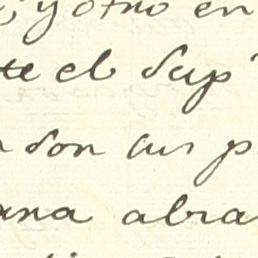 y otro en
te el Sup
son sus p
ana abra